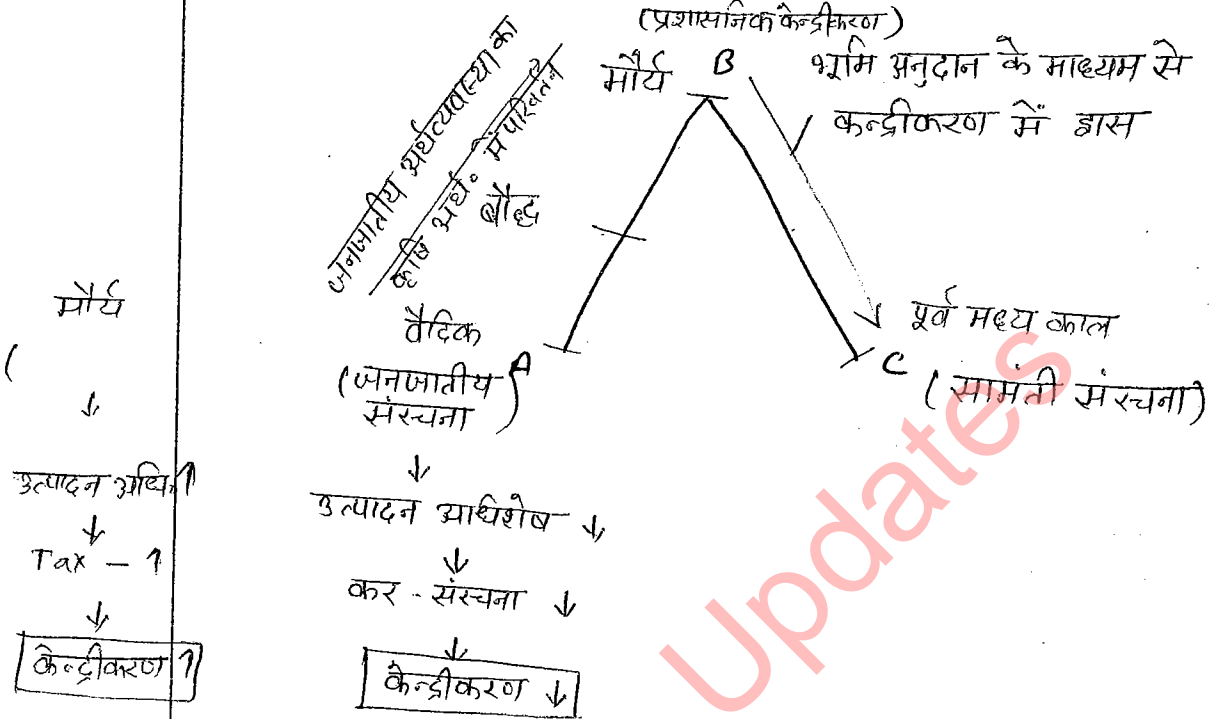 (प्रशासनिक केन्द्रीकरण)
मौर्य B
भूमि अनुदान के माध्यम से
केन्द्रीकरण में ह्रास
जनजातीय अर्थव्यवस्था का
कृषि अर्थ॰ में परिवर्तन
बौद्ध
वैदिक
(जनजातीय
संरचना)
A
C
पूर्व मध्य काल
(सामंती संरचना)
↓
उत्पादन अधिशेष ↓
↓
कर - संरचना ↓
↓
केन्द्रीकरण ↓
मौर्य
(
↓
उत्पादन अधि. ↑
↓
Tax - ↑
↓
केन्द्रीकरण ↑
Updates